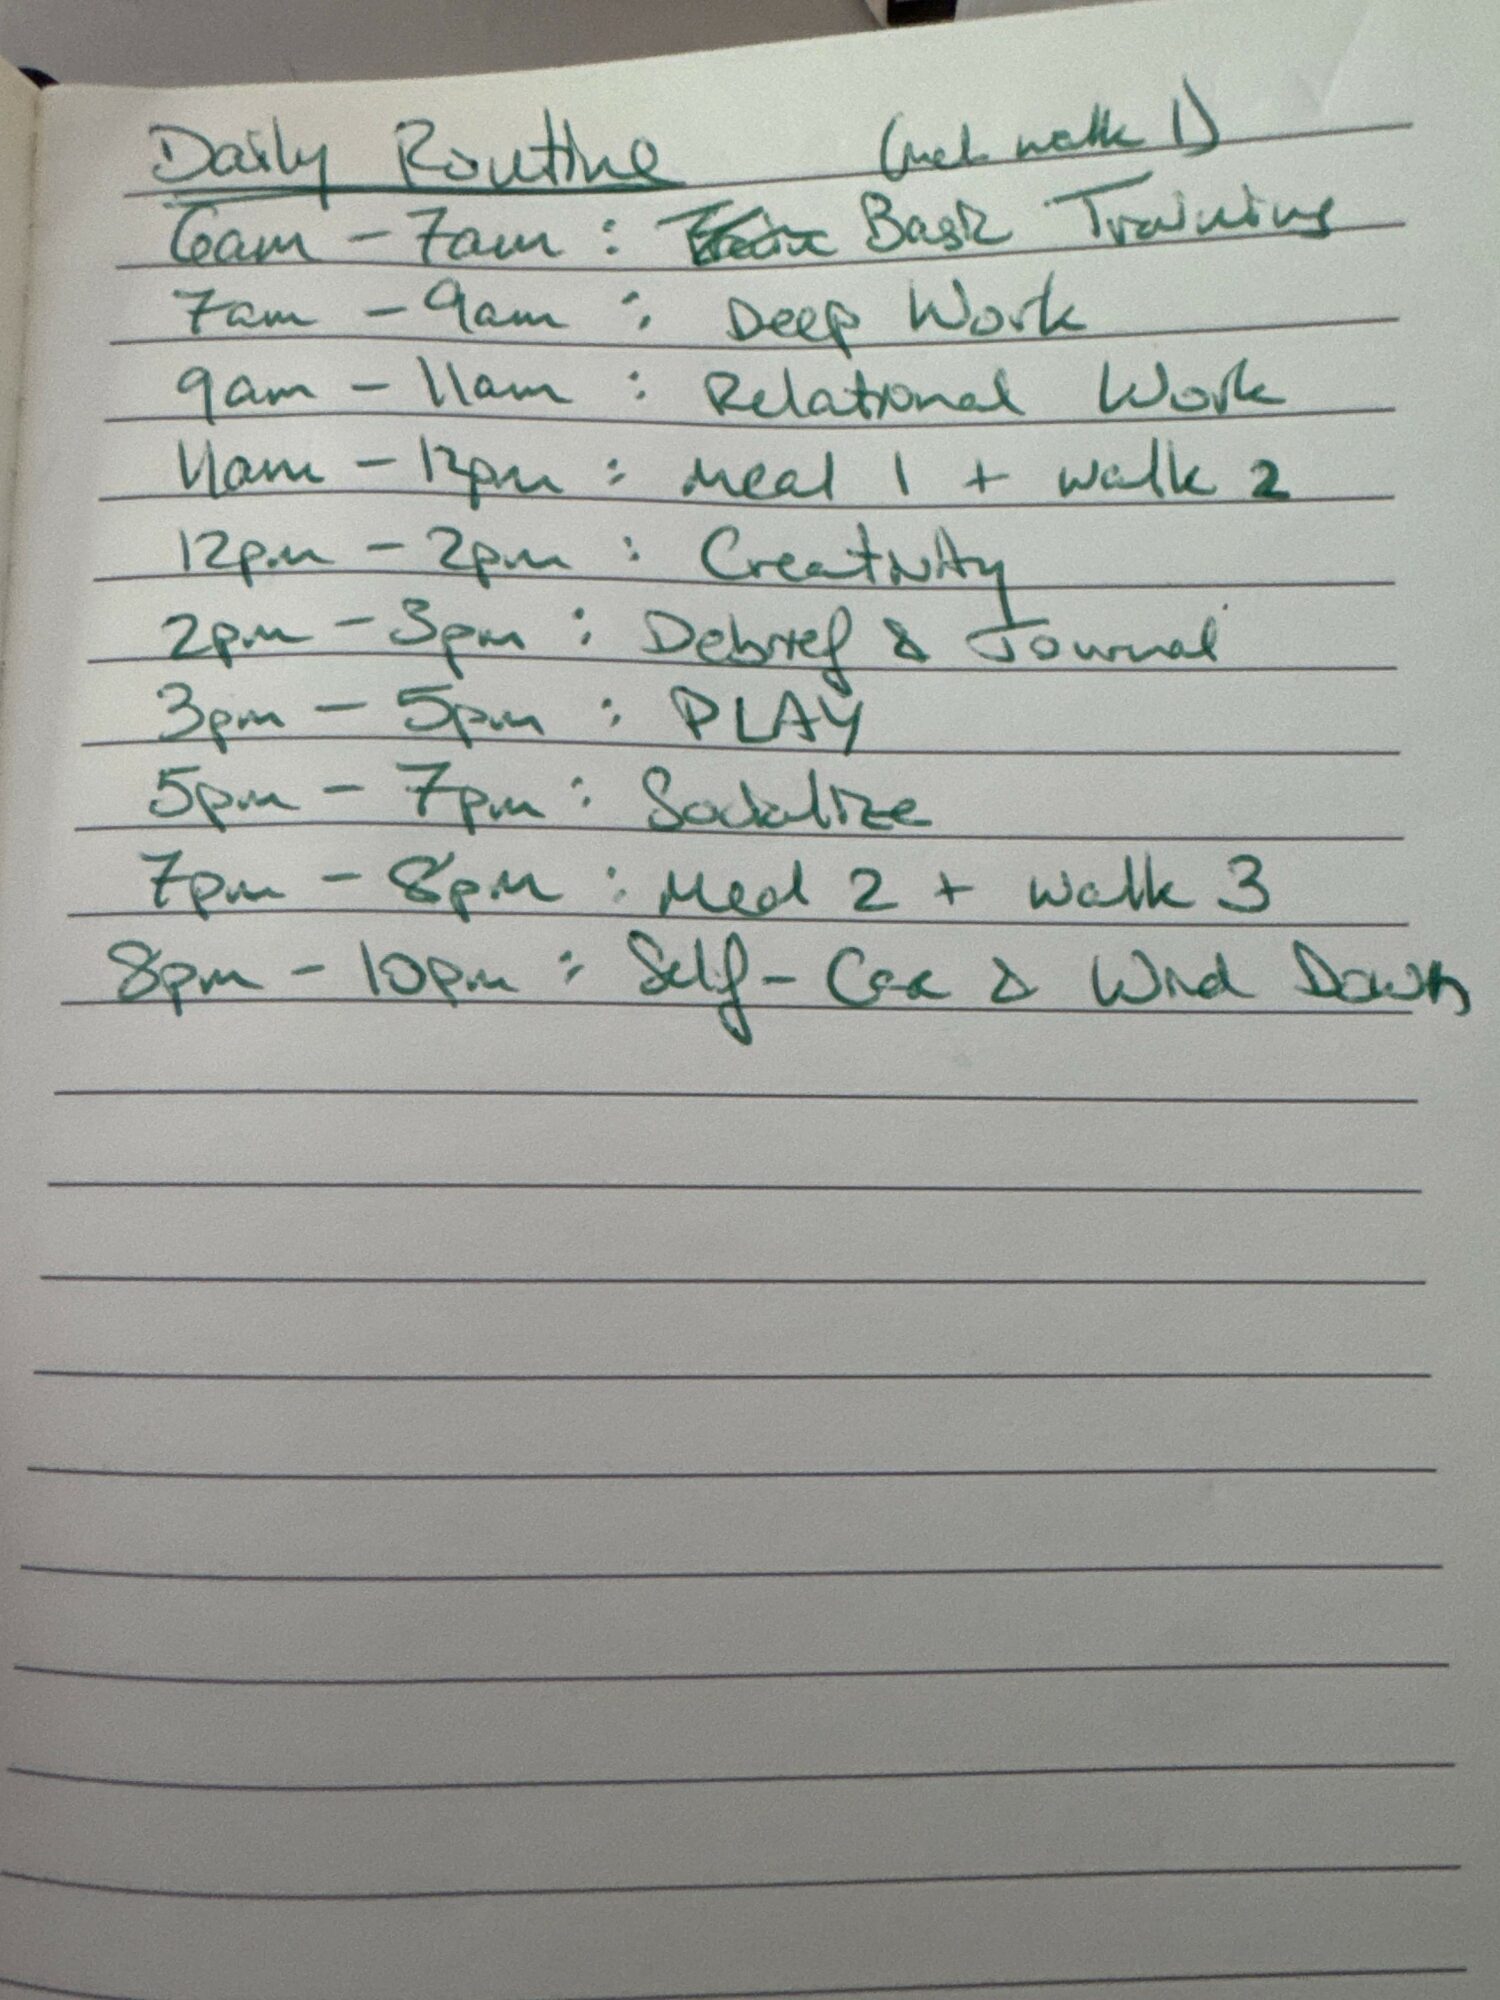 Daily Routine (incl walk 1)
6am - 7am : Basic Training
7am - 9am : Deep Work
9am - 11am : Relational Work
11am - 12pm : Meal 1 + walk 2
12pm - 2pm : Creativity
2pm - 3pm : Debrief & Journal
3pm - 5pm : PLAY
5pm - 7pm : Socialize
7pm - 8pm : Meal 2 + walk 3
8pm - 10pm : Self-Care & Wind Down